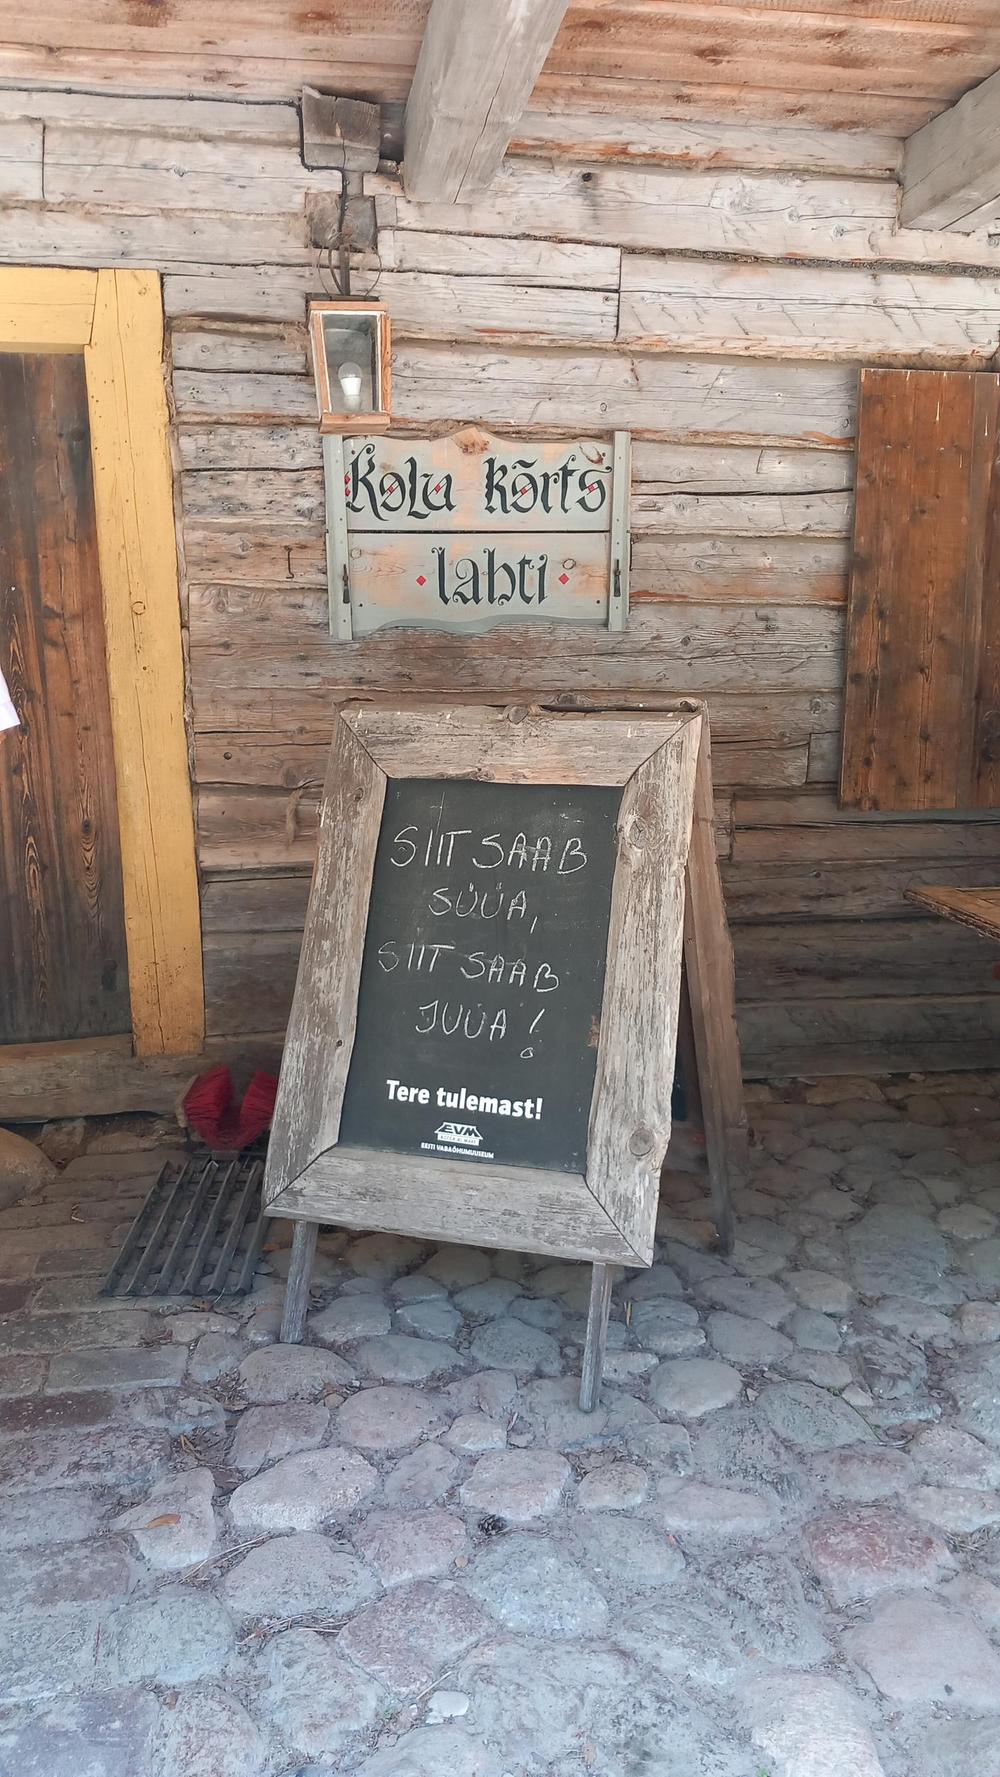 Kolu kõrts
lahti
SIIT SAAB
SÜÜA,
SIIT SAAB
JUUA!
Tere tulemast!
EVM
EESTI VABAÕHUMUUSEUM